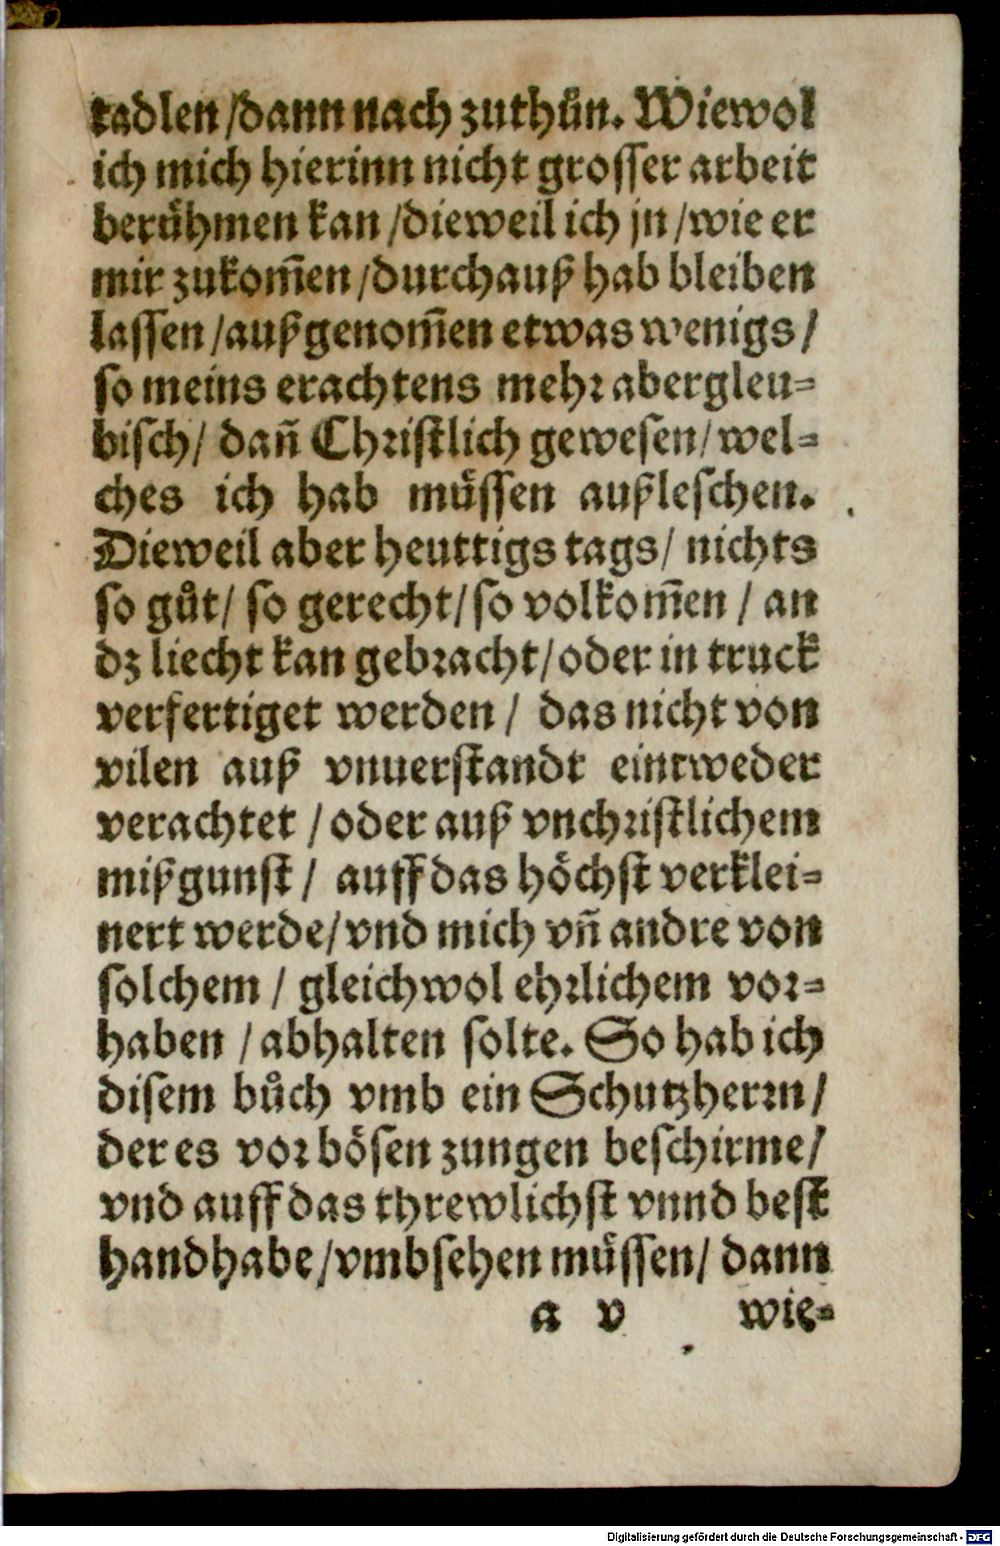 tadlen /dann nach zuthůn. Wiewol
ich mich hierinn nicht grosser arbeit
berühmen kan /dieweil ich jn /wie er
mir zukom̃en /durchauß hab bleiben
lassen /außgenom̃en etwas wenigs /
so meins erachtens mehr abergleu=
bisch / dañ Christlich gewesen / wel=
ches ich hab müssen außleschen.
Dieweil aber heuttigs tags / nichts
so gůt / so gerecht / so volkom̃en / an
dz liecht kan gebracht / oder in truck
verfertiget werden / das nicht von
vilen auß vnuerstandt eintweder
verachtet / oder auß vnchristlichem
mißgunst / auff das höchst verklei=
nert werde / vnd mich vñ andre von
solchem / gleichwol ehrlichem vor=
haben / abhalten solte. So hab ich
disem bůch vmb ein Schutzherrn /
der es vor bösen zungen beschirme /
vnd auff das threwlichst vnnd best
handhabe / vmbsehen müssen / dann
a v wie=
Digitalisierung gefördert durch die Deutsche Forschungsgemeinschaft - DFG